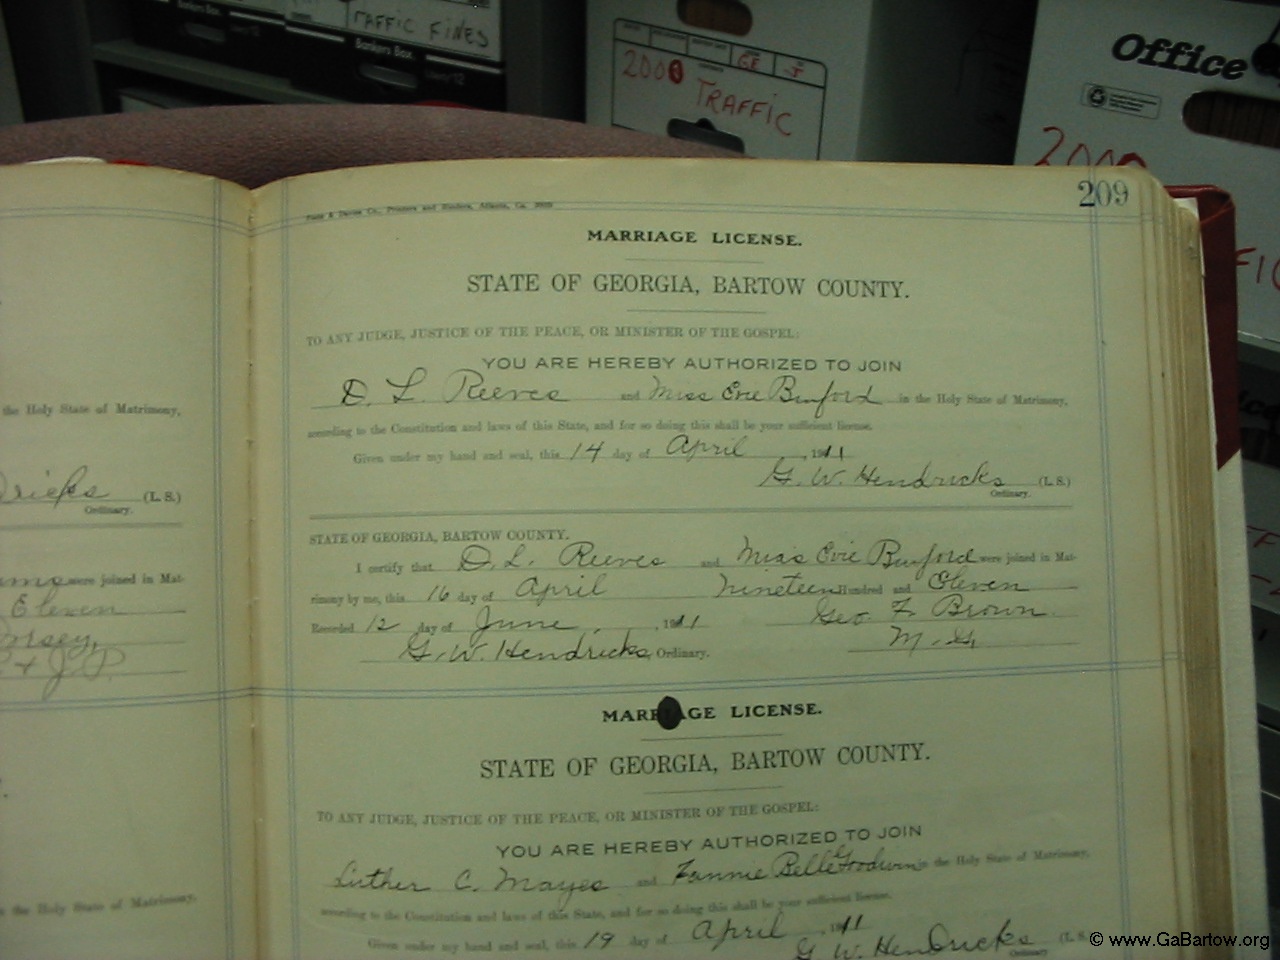 TRAFFIC FINES
Bankers Box
Bankers Box
2000 TRAFFIC
Office
2000
209
MARRIAGE LICENSE.
STATE OF GEORGIA, BARTOW COUNTY.
TO ANY JUDGE, JUSTICE OF THE PEACE, OR MINISTER OF THE GOSPEL:
YOU ARE HEREBY AUTHORIZED TO JOIN
D. L. Reeves and Miss Evie Binford in the Holy State of Matrimony,
according to the Constitution and laws of this State, and for so doing this shall be your sufficient license.
Given under my hand and seal, this 14 day of April, 1911
G. W. Hendricks (L. S.)
Ordinary.
STATE OF GEORGIA, BARTOW COUNTY.
I certify that D. L. Reeves and Miss Evie Binford were joined in Mat-
rimony by me, this 16 day of April Nineteen Hundred and Eleven
Recorded 12 day of June, 1911 Geo. F. Brown
G. W. Hendricks, Ordinary. M. G.
MARRIAGE LICENSE.
STATE OF GEORGIA, BARTOW COUNTY.
TO ANY JUDGE, JUSTICE OF THE PEACE, OR MINISTER OF THE GOSPEL:
YOU ARE HEREBY AUTHORIZED TO JOIN
Luther C. Mayes and Fannie Belle Goodwin in the Holy State of Matrimony,
according to the Constitution and laws of this State, and for so doing this shall be your sufficient license.
Given under my hand and seal, this 19 day of April, 1911
G. W. Hendricks (L. S.
Ordinary
the Holy State of Matrimony,
(L. S.)
Ordinary.
were joined in Mat-
Eleven
& J. P.
the Holy State of Matrimony,
© www.GaBartow.org